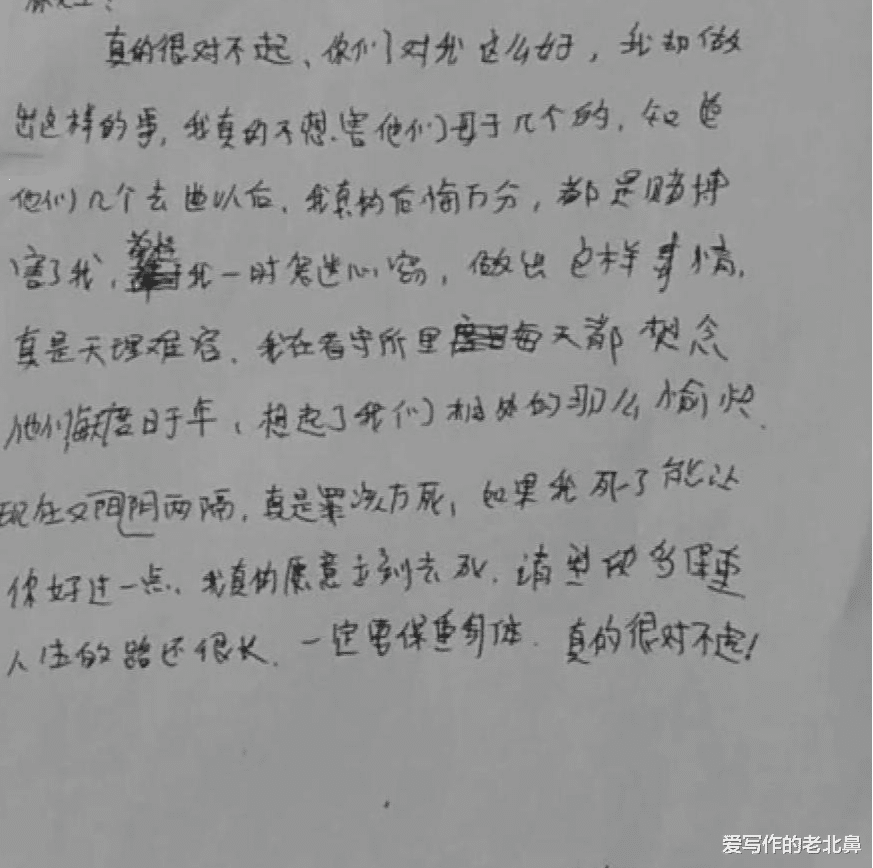 真的很对不起、你们对我这么好，我却做
出这样的事，我真的不想害他们母子几个的，知道
他们几个去世以后，我真的后悔万分，都是赌博
害了我，我一时鬼迷心窍，做出这样事情，
真是天理难容、我在看守所里每天都想念
他们度日于年，想起了我们相处的那么愉快
现在又阴阳两隔，真是罪该万死，如果我死了能让
你好过一点、我真的愿意立刻去死、请多保重
人生的路还很长、一定要保重身体. 真的很对不起！
爱写作的老北鼻